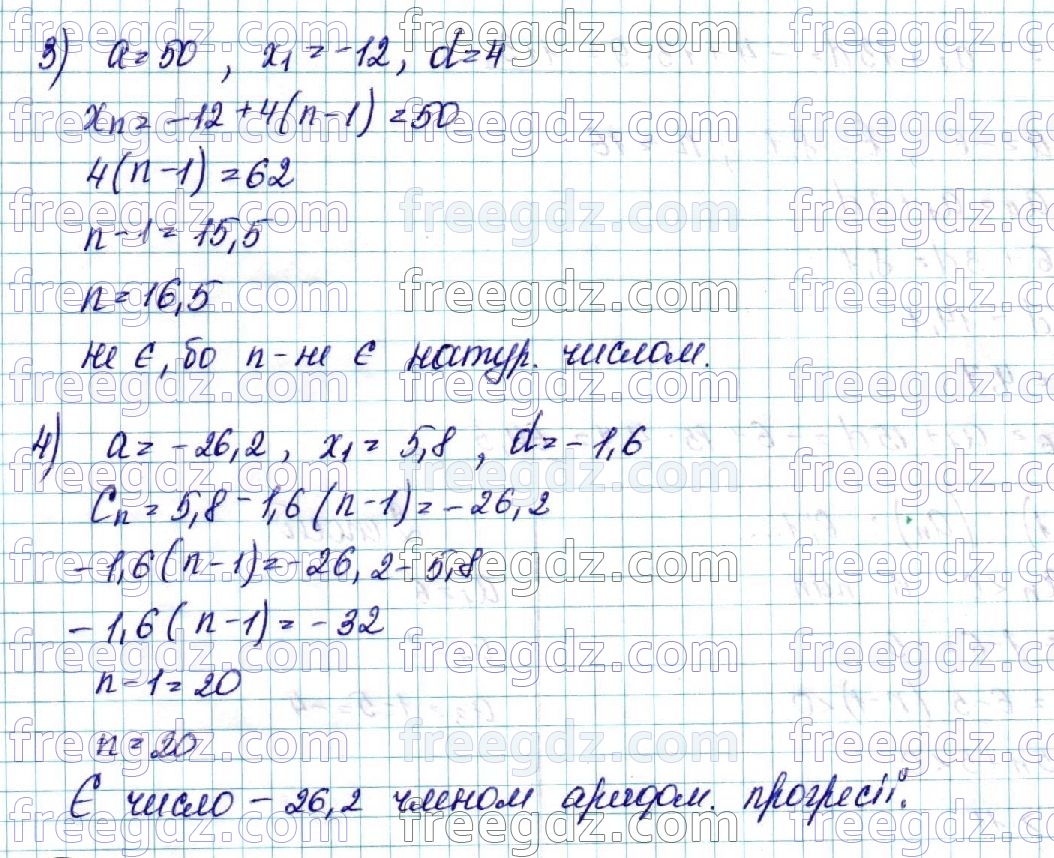 3) a=50, x₁=-12, d=4
xₙ=-12+4(n-1)=50
4(n-1)=62
n-1=15,5
n=16,5
не є, бо n-не є натур. числом.
4) a=-26,2, x₁=5,8, d=-1,6
Cₙ=5,8-1,6(n-1)=-26,2
-1,6(n-1)=-26,2-5,8
-1,6(n-1)=-32
n-1=20
n=20
Є число -26,2 членом аридом. прогресії.
freegdz.com